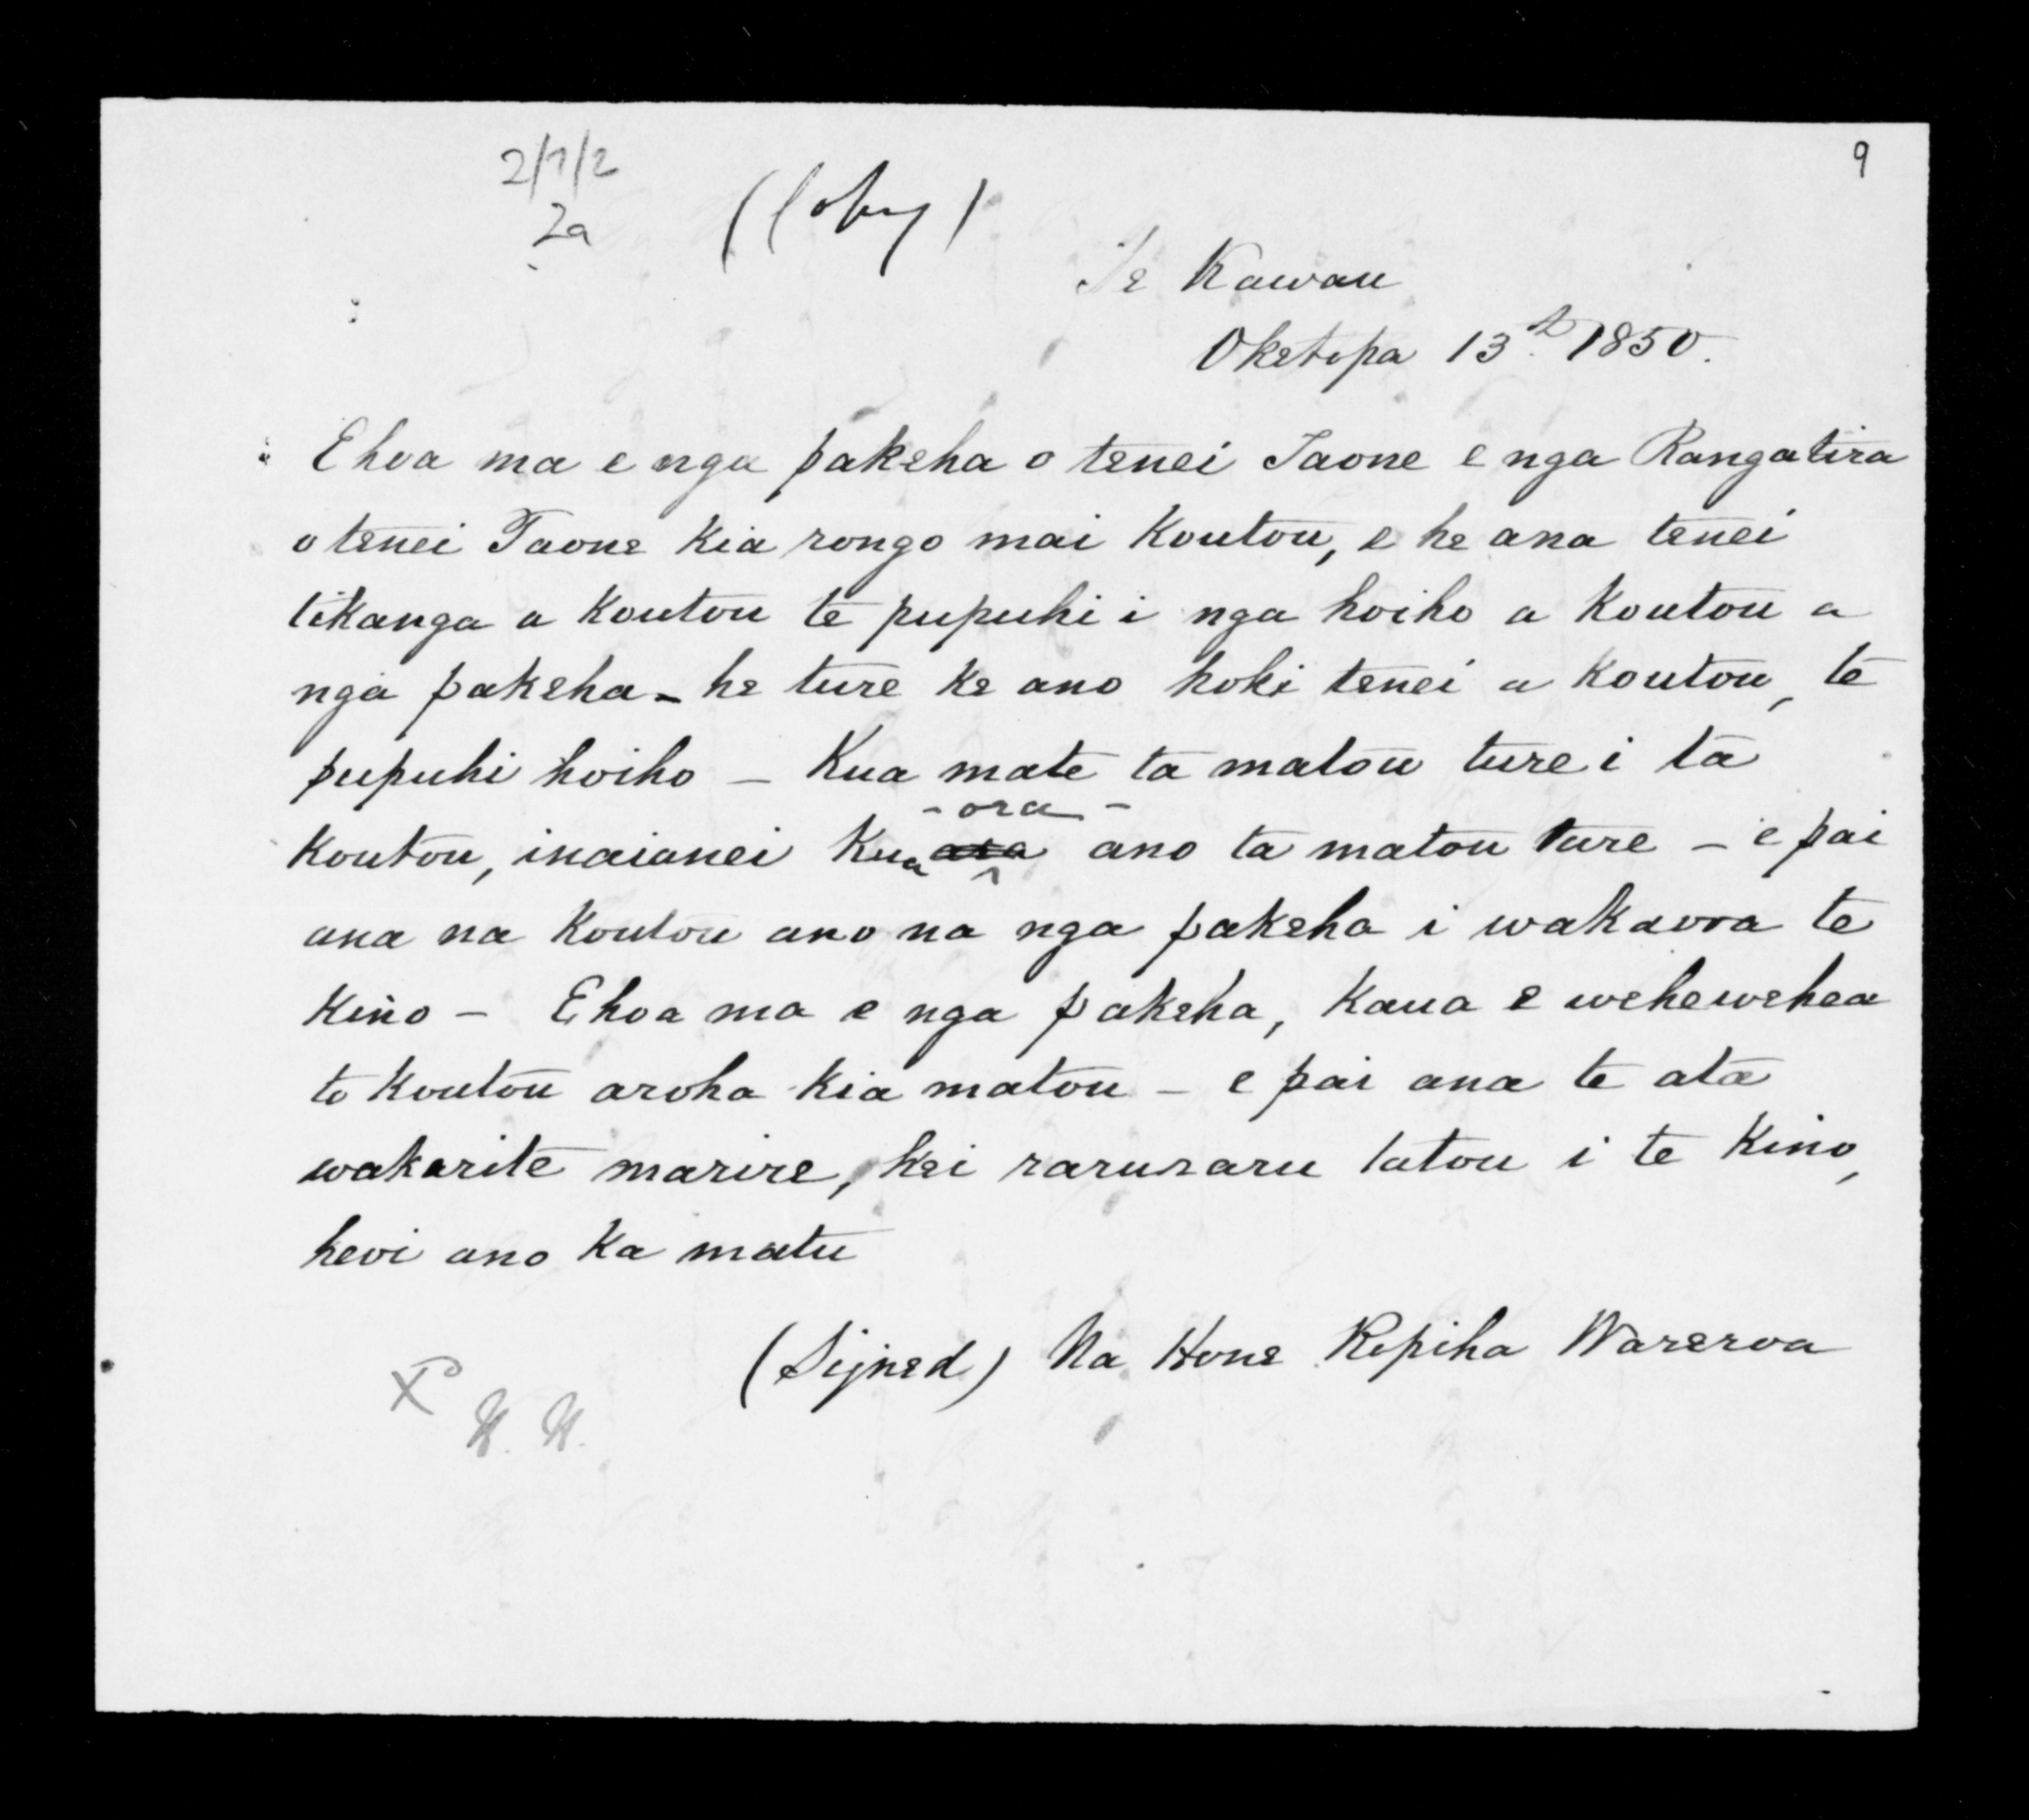 2/1/2
2a
9
(Copy)
Te Kawau
Oketopa 13th 1850.
E hoa ma e nga pakeha o tenei Taone e nga Rangatira
o tenei Taone Kia rongo mai Koutou, e he ana tenei
tikanga a Koutou te pupuhi i nga hoiho a Koutou a
nga pakeha - he ture ke ano hoki tenei a Koutou, te
pupuhi hoiho - Kua mate ta matou ture i ta
- ora -
Koutou, inaianei Kua ara ano ta matou ture - e pai
ana na Koutou ano na nga pakeha i wakaora te
Kino - E hoa ma e nga pakeha, Kaua e wehewehea
to Koutou aroha Kia matou - e pai ana te ata
wakarite marire, kei raruraru tatou i te Kino,
heoi ano Ka mutu
(Signed) Na Hone Ropiha Wareroa